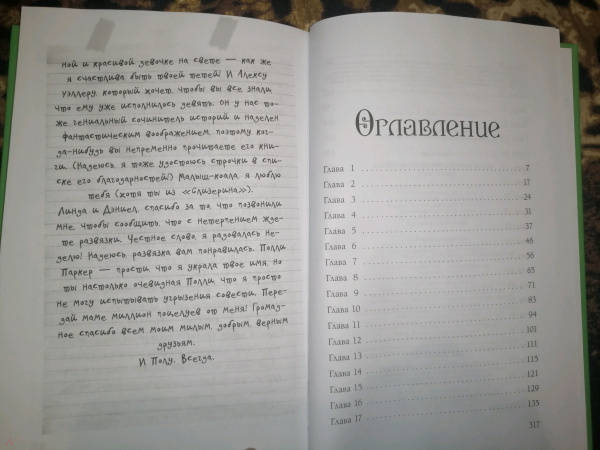 ной и красивой девочке на свете — как же
я счастлива быть твоей тётей! И Алексу
Уоллеру, который хочет, чтобы вы все знали,
что ему уже исполнилось девять. Он у нас то-
же гениальный сочинитель историй и наделён
фантастическим воображением, поэтому ког-
да-нибудь вы непременно прочитаете его кни-
ги. (Надеюсь, я тоже удостоюсь строчки в спи-
ске его благодарностей!) Малыш-коала, я люблю
тебя (хотя ты из «Слизерина»).
Линда и Дэниел, спасибо за то, что позвонили
мне, чтобы сообщить, что с нетерпением жде-
те развязки. Честное слово, я радовалась не-
делю! Надеюсь, развязка вам понравилась. Полли
Паркер — прости, что я украла твоё имя, но
ты настолько очевидная Полли, что я просто
не могу испытывать угрызения совести. Пере-
дай маме миллион поцелуев от меня! Громад-
ное спасибо всем моим милым, добрым, верным
друзьям.
И Полу. Всегда.
Оглавление
Глава 1 7
Глава 2 17
Глава 3 24
Глава 4 31
Глава 5 37
Глава 6 46
Глава 7 56
Глава 8 65
Глава 9 71
Глава 10 83
Глава 11 94
Глава 12 101
Глава 13 111
Глава 14 115
Глава 15 121
Глава 16 129
Глава 17 135
317